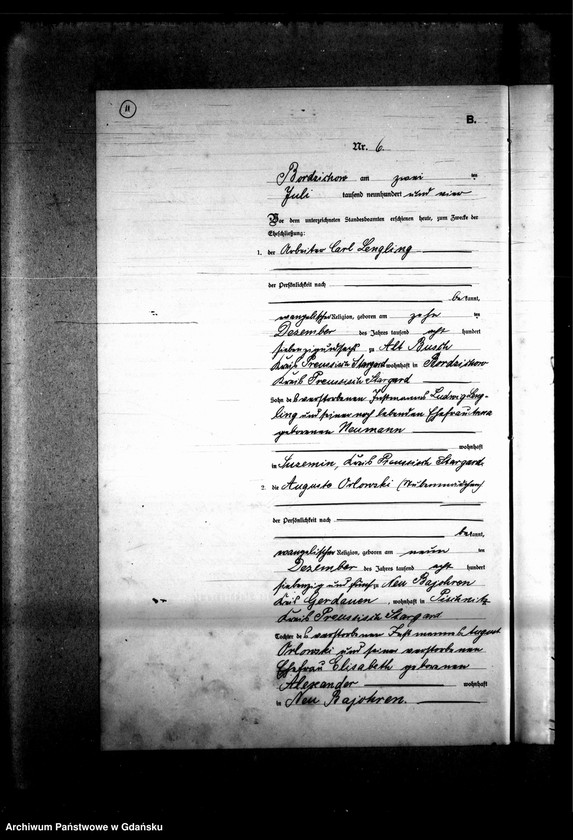 11
B.
Nr. 6.
Bordzichow am zwei ten
Juli tausend neunhundert und vier
Vor dem unterzeichneten Standesbeamten erschienen heute, zum Zwecke der
Eheschließung:
1. der Arbeiter Carl Lengling
der Persönlichkeit nach
bekannt,
evangelischer Religion, geboren am zehn ten
Dezember des Jahres tausend acht hundert
siebenzigundsechs zu Alt Busch
Kreis Preussisch Stargard wohnhaft in Bordzichow
Kreis Preussisch Stargard
Sohn des verstorbenen Instmanns Ludwig Leng-
ling und seiner noch lebenden Ehefrau
geborenen Neumann
wohnhaft
in Suzemin, Kreis Preussisch Stargard
2. die Auguste Orlowski
der Persönlichkeit nach
bekannt,
evangelischer Religion, geboren am neun ten
Dezember des Jahres tausend acht hundert
siebenzig und fünf zu Neu Bajohren
Kreis Gerdauen, wohnhaft in
Kreis Preussisch Stargard
Tochter des verstorbenen Instmanns August
Orlowski und seiner verstorbenen
Ehefrau Elisabeth geborenen
Alexander wohnhaft
in Neu Bajohren.
Archiwum Państwowe w Gdańsku